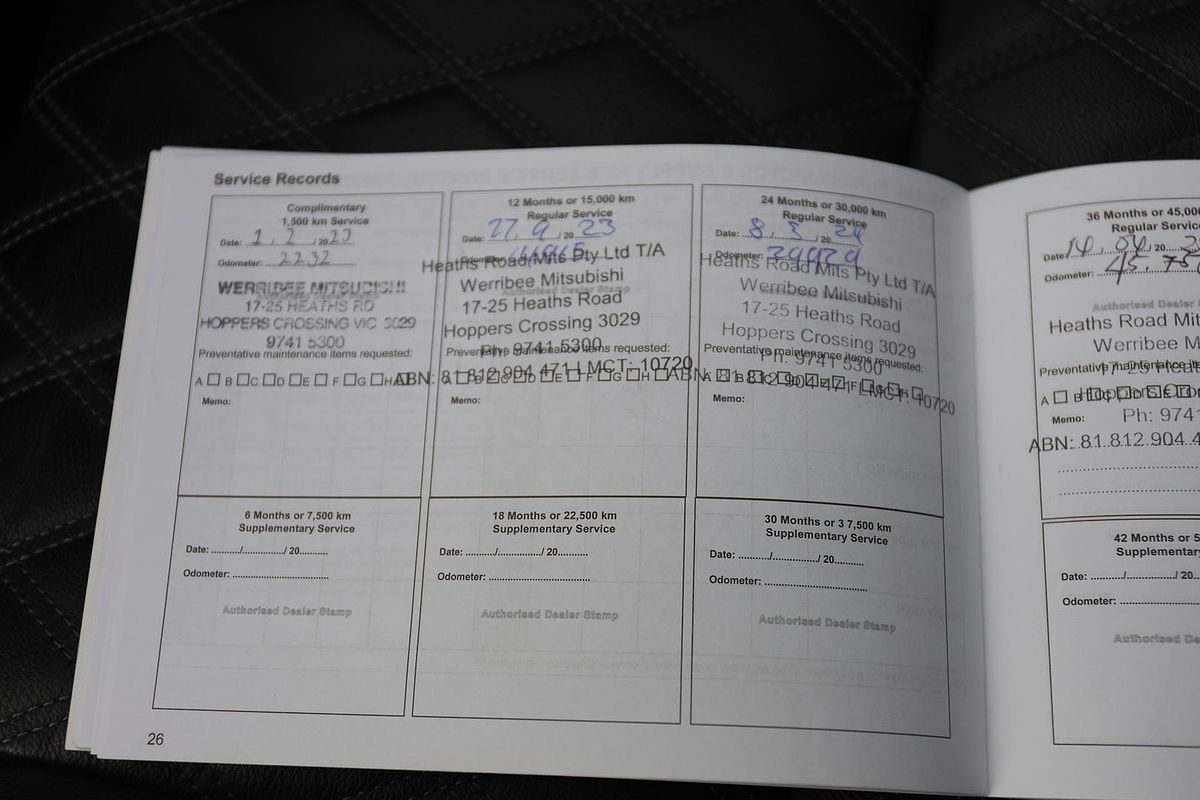 Service Records
Complimentary
1,500 km Service
Date: 1 / 2 / 2023
Odometer: 2232
WERRIBEE MITSUBISHI
17-25 HEATHS RD
HOPPERS CROSSING VIC 3029
9741 5300
Preventative maintenance items requested:
A B C D E F G H
Memo:
12 Months or 15,000 km
Regular Service
Date: 27 / 9 / 2023
Odometer:
Heaths Road Mits Pty Ltd T/A
Authorised Dealer Stamp
Werribee Mitsubishi
17-25 Heaths Road
Hoppers Crossing 3029
Ph: 9741 5300
Preventative maintenance items requested:
ABN: 81 812 904 471 LMCT: 10720
A B C D E F G H
Memo:
24 Months or 30,000 km
Regular Service
Date: 8 / / 2024
Odometer:
Heaths Road Mits Pty Ltd T/A
Werribee Mitsubishi
17-25 Heaths Road
Hoppers Crossing 3029
Preventative maintenance items requested:
Ph: 9741 5300
ABN: 81 812 904 471 LMCT: 10720
A B C D E F G H
Memo:
36 Months or 45,00
Regular Servic
Date: 14 / 04 / 20
Odometer: 45,
Authorised Dealer
Heaths Road Mit
Werribee M
Preventative maintenance ite
17-25 Heat
A B C D E
Hoppers Cro
Memo:
Ph: 9741
ABN: 81 812 904 4
6 Months or 7,500 km
Supplementary Service
Date: ........../............../ 20..........
Odometer: ................................
Authorised Dealer Stamp
18 Months or 22,500 km
Supplementary Service
Date: ........../............../ 20..........
Odometer: ................................
Authorised Dealer Stamp
30 Months or 3 7,500 km
Supplementary Service
Date: ........../............../ 20..........
Odometer: ................................
Authorised Dealer Stamp
42 Months or 5
Supplementary
Date: ........../............../ 20
Odometer: ..........................
Authorised De
26